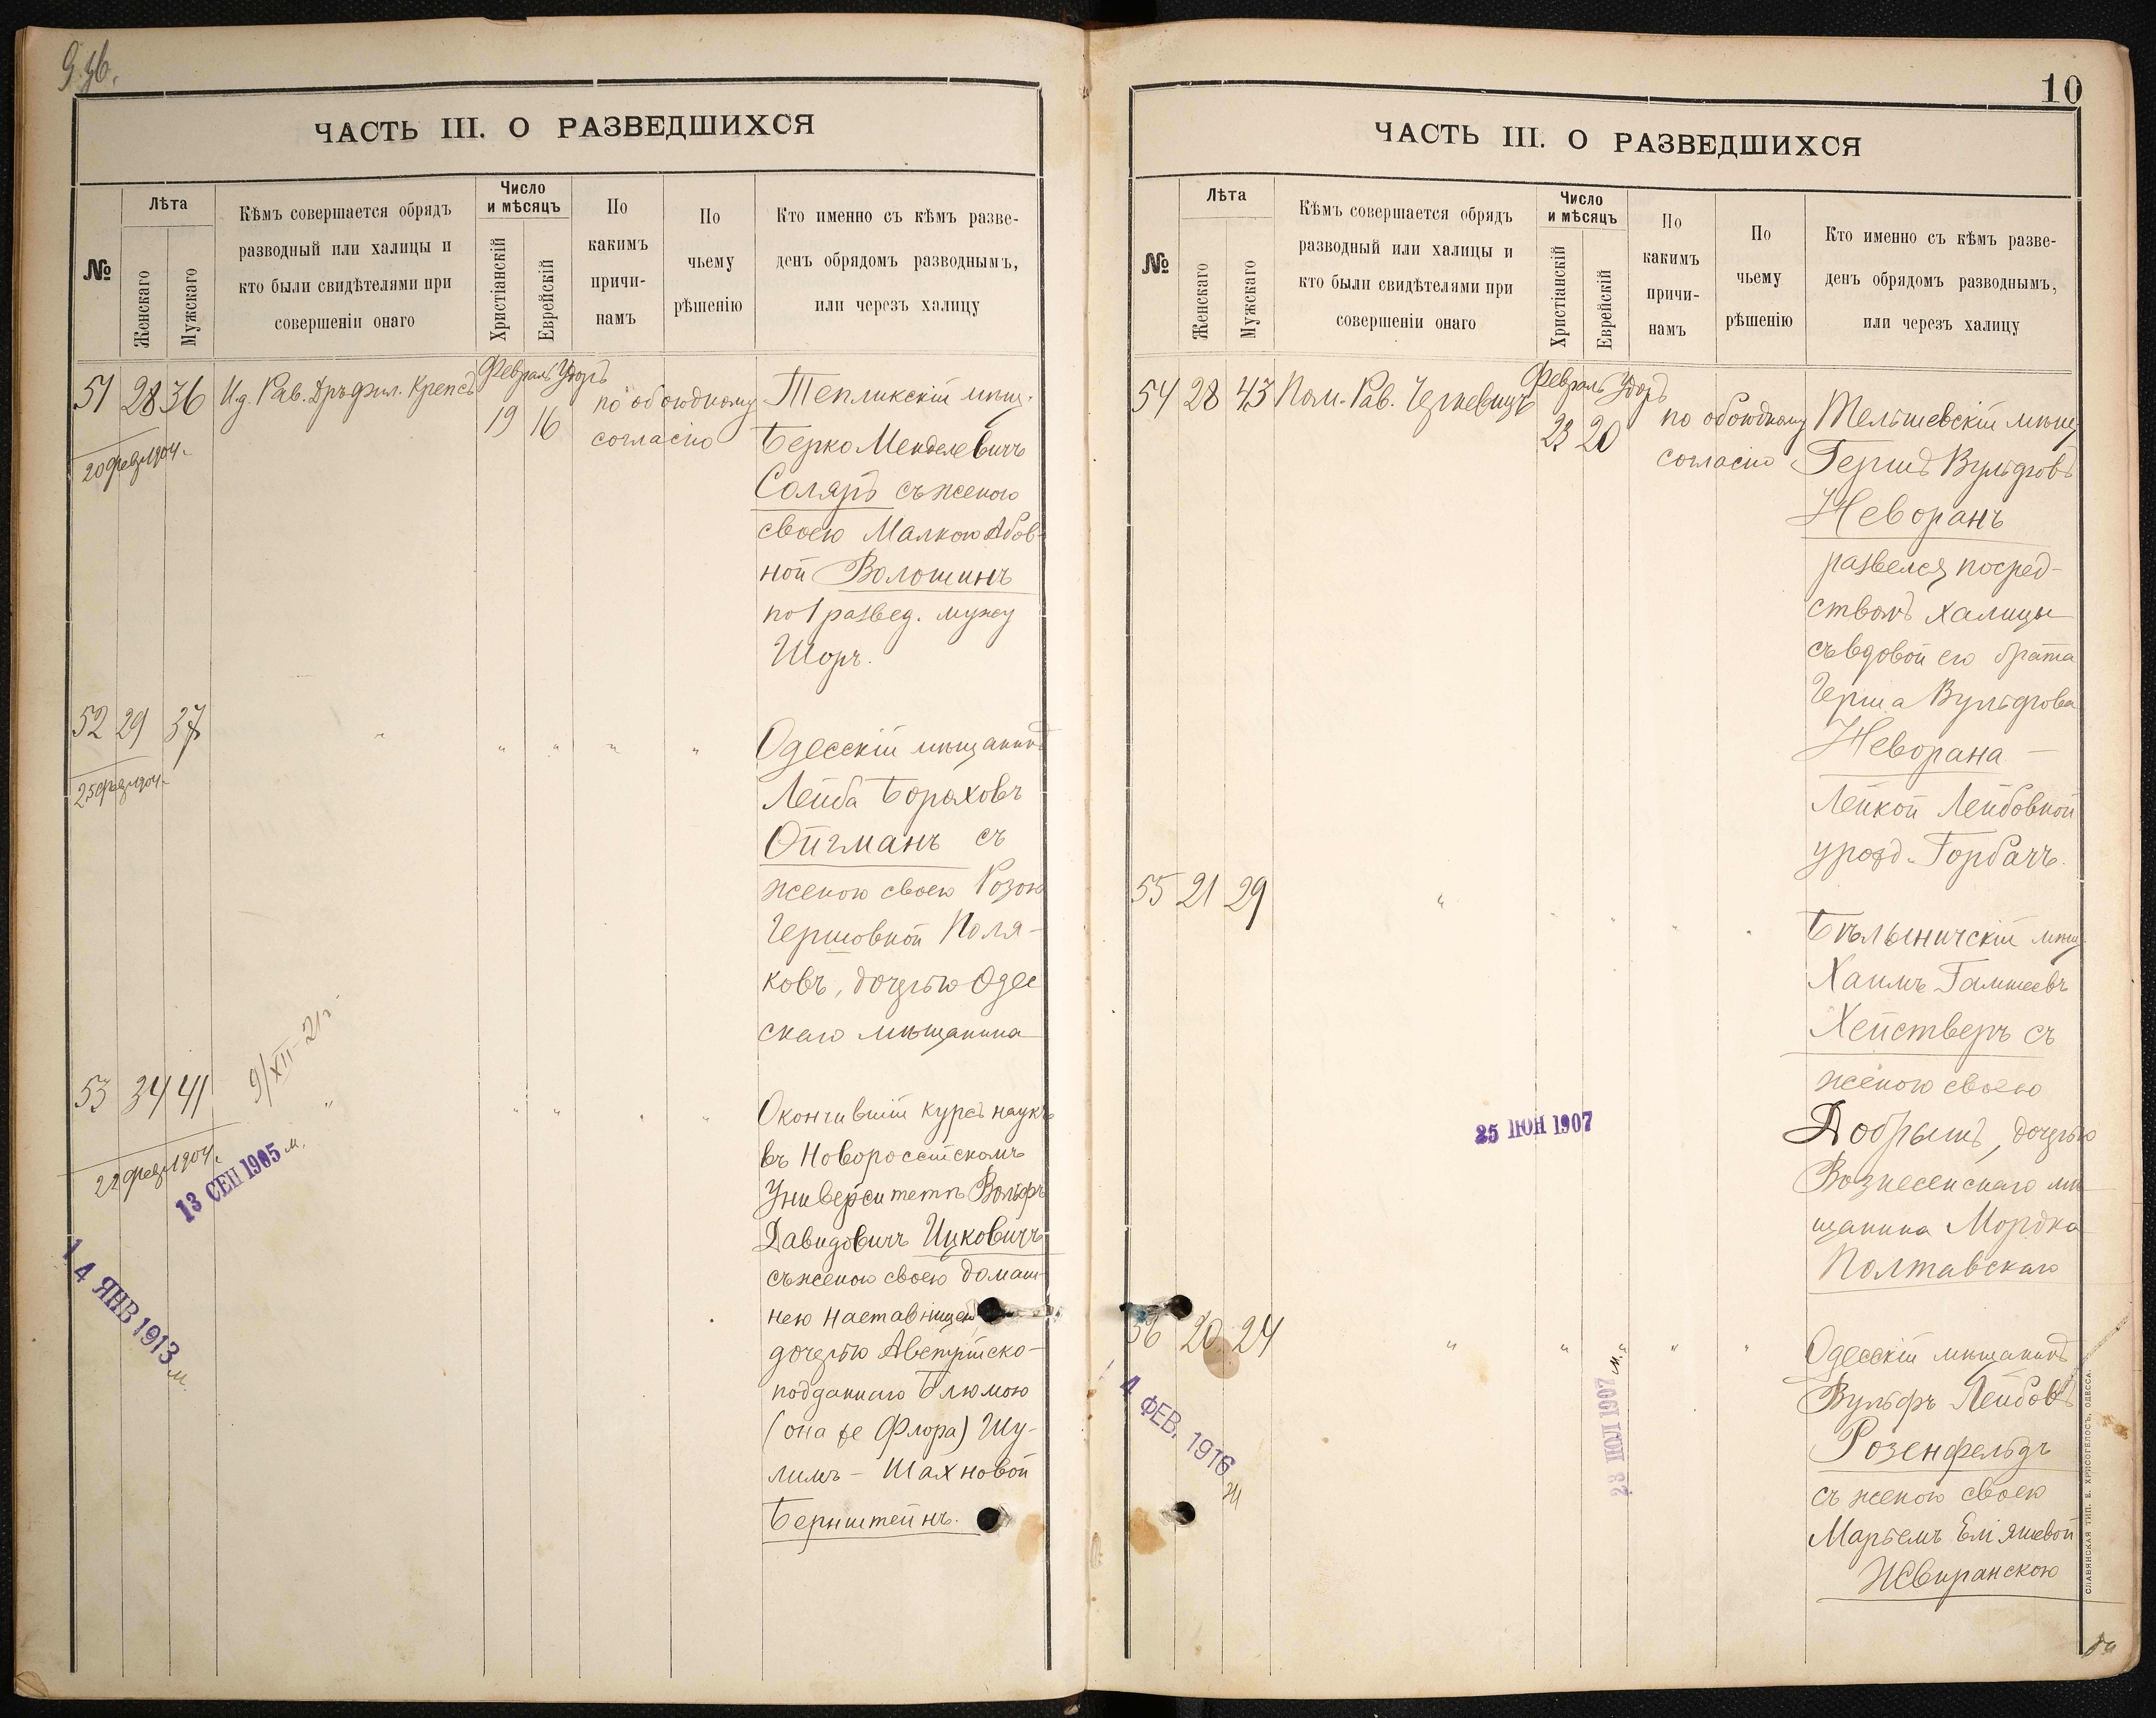 ЧАСТЬ III. О РАЗВЕДШИХСЯ
№
Лѣта
Женскаго
Мужскаго
Кѣмъ совершается обрядъ
разводный или халицы и
кто были свидѣтелями при
совершеніи онаго
Число
и мѣсяцъ
Христіанскій
Еврейскій
По
какимъ
причи-
намъ
По
чьему
рѣшенію
Кто именно съ кѣмъ разве-
денъ обрядомъ разводнымъ,
или черезъ халицу
51 28 36
Февраль
19 16
по обоюдному
согласію
Тепликскій мѣщ.
Берко Менделевичъ
Соляръ съ женою
своею Малкою Абов-
ной Волошинъ
по 1 развед. мужу
Шоръ.
20 февр 1904 г.
52 29 37 " " " " "
Одесскій мѣщанинъ
Лейба Бораховъ
Ойгманъ съ
женою своею Розою
Гершовной Поля-
ковъ, дочерью Одес
скаго мѣщанина
25 февр 1904 г.
53 34 41 " " " " "
9/XII-21 г
Окончившій курсъ наукъ
въ Новороссійскомъ
Университетѣ Вольфъ
Давидовичъ Ицковичъ
съ женою своею домаш-
нею наставницею
дочерью Австрійско-
подданнаго Блюмою
(она же Флора) Шу-
лимъ-Шахновой
Бернштейнъ.
22 февр 1904 г.
13 СЕН 1905 м.
14 ЯНВ 1913 м.
10
ЧАСТЬ III. О РАЗВЕДШИХСЯ
№
Лѣта
Женскаго
Мужскаго
Кѣмъ совершается обрядъ
разводный или халицы и
кто были свидѣтелями при
совершеніи онаго
Число
и мѣсяцъ
Христіанскій
Еврейскій
По
какимъ
причи-
намъ
По
чьему
рѣшенію
Кто именно съ кѣмъ разве-
денъ обрядомъ разводнымъ,
или черезъ халицу
54 28 43 Пом. Рав.
Февраль
23 20
по обоюдному
согласію
Тельшевскій мѣщ
Гершъ Вульфовъ
Неворанъ
развелся посред-
ствомъ халицы
съ вдовой его брата
Герша Вульфова
Неворана -
Лейкой Лейбовной
урожд. Горбачъ.
55 21 29 " " " " "
Бѣлыничскій мѣщ
Хаимъ
Хействеръ съ
женою своею
Добрышъ, дочерью
Вознесенскаго мѣ
щанина Мордка
Полтавскаго
25 ІЮН 1907
56 20 24 " " " " "
Одесскій мѣщанинъ
Вульфъ Лейбовъ
Розенфельдъ
съ женою своею
Марьемъ Еліяшевой
23 ІЮЛ 1907 м.
4 ФЕВ. 1916
СЛАВЯНСКАЯ ТИП. Е. ХРИСОГЕЛОСЪ, ОДЕССА.